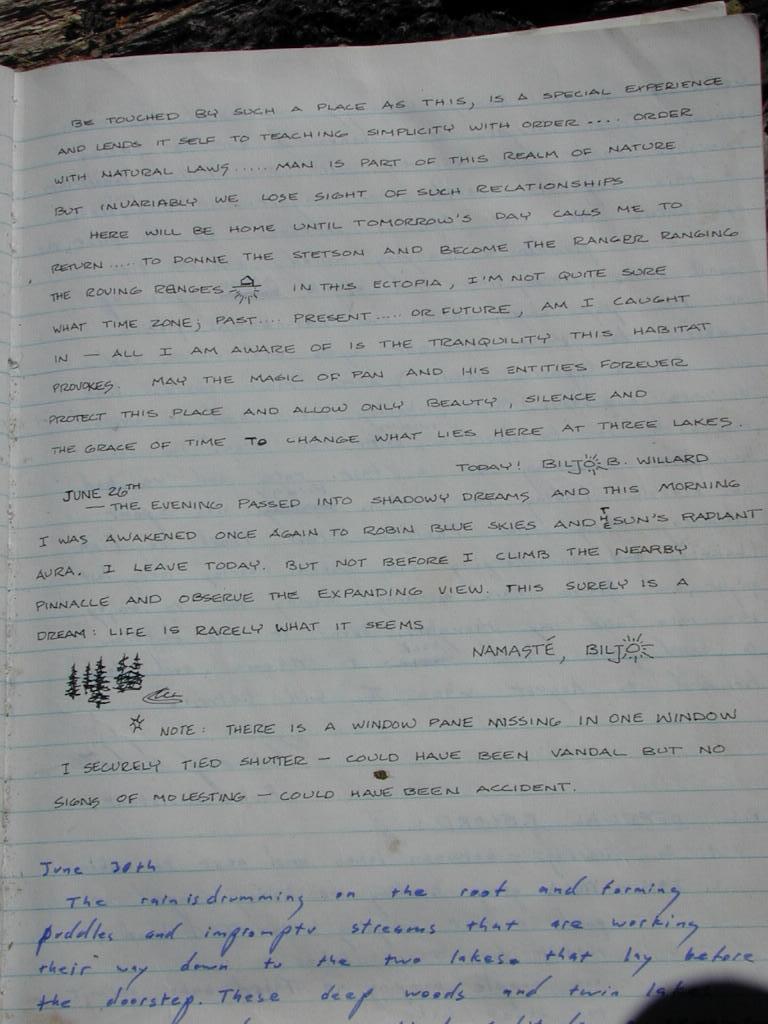 BE TOUCHED BY SUCH A PLACE AS THIS, IS A SPECIAL EXPERIENCE
AND LENDS IT SELF TO TEACHING SIMPLICITY WITH ORDER .... ORDER
WITH NATURAL LAWS ..... MAN IS PART OF THIS REALM OF NATURE
BUT INVARIABLY WE LOSE SIGHT OF SUCH RELATIONSHIPS
HERE WILL BE HOME UNTIL TOMORROW'S DAY CALLS ME TO
RETURN ..... TO DONNE THE STETSON AND BECOME THE RANGER RANGING
THE ROVING RANGES IN THIS ECTOPIA, I'M NOT QUITE SURE
WHAT TIME ZONE; PAST .... PRESENT ..... OR FUTURE, AM I CAUGHT
IN — ALL I AM AWARE OF IS THE TRANQUILITY THIS HABITAT
PROVOKES. MAY THE MAGIC OF PAN AND HIS ENTITIES FOREVER
PROTECT THIS PLACE AND ALLOW ONLY BEAUTY, SILENCE AND
THE GRACE OF TIME TO CHANGE WHAT LIES HERE AT THREE LAKES.
TODAY! BILJO B. WILLARD
JUNE 26TH
— THE EVENING PASSED INTO SHADOWY DREAMS AND THIS MORNING
I WAS AWAKENED ONCE AGAIN TO ROBIN BLUE SKIES AND THE SUN'S RADIANT
AURA. I LEAVE TODAY. BUT NOT BEFORE I CLIMB THE NEARBY
PINNACLE AND OBSERVE THE EXPANDING VIEW. THIS SURELY IS A
DREAM: LIFE IS RARELY WHAT IT SEEMS
NAMASTÉ, BILJO
☆ NOTE: THERE IS A WINDOW PANE MISSING IN ONE WINDOW
I SECURELY TIED SHUTTER — COULD HAVE BEEN VANDAL BUT NO
SIGNS OF MOLESTING — COULD HAVE BEEN ACCIDENT.
June 30th
The rain is drumming on the roof and forming
puddles and impromptu streams that are working
their way down to the two lakes that lay before
the doorstep. These deep woods and twin lakes